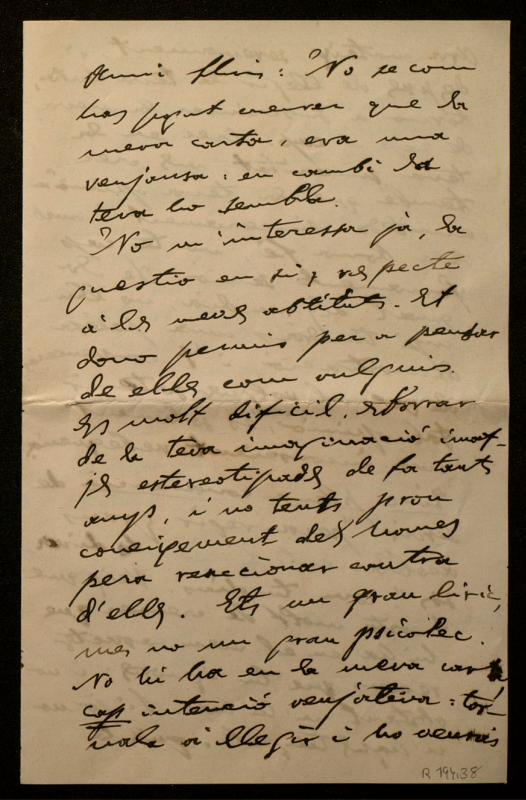 Amic Lluis: No se com
has pogut creurer que la
meva carta, era una
venjansa: en cambi la
teva ho sembla.
No m'interessa ja, la
questio en si, respecte
á les meves abtituts. Et
dono permis per a pensar
de elles com vulguis.
Es molt dificil, esborrar
de la teva imaginació imat-
jes estereotipades de fa tants
anys, i no tens prou
coneixement dels homes
pera reaccionar contra
d'elles. Ets un gran liric,
mes no un gran psicolec.
No hi ha en la meva carta
cap intenció venjativa: tor-
nala a llegir i ho veuras
R 194.38